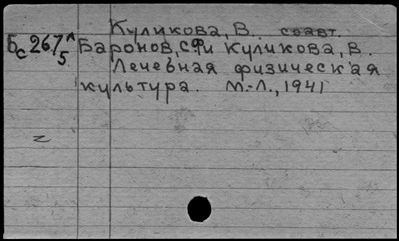 Куликова, В. соавт.
Бс 267^л/5 Баронов, СФ и Куликова, В.
Лечебная физическая
культура. М.-Л., 1941